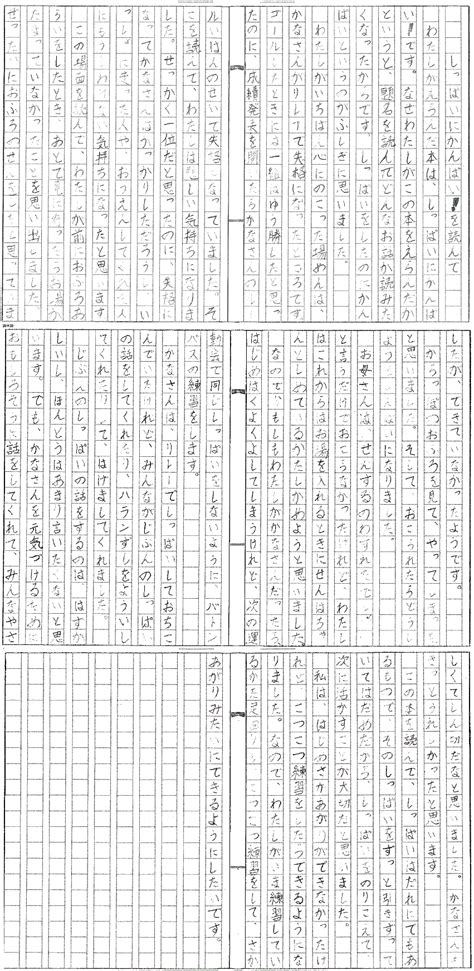 しっぱいにかんぱい!を読んで
わたしがえらんだ本は、しっぱいにかんぱ
い!です。なぜわたしがこの本をえらんだか
というと、題名を読んでどんなお話か読みた
くなったからです。しっぱいをしたのにかん
ぱいというのがふしぎに思いました。
わたしがいちばん心にのこった場めんは、
かなさんがリレーで失格になったところです。
ゴールしたときには一組がゆう勝したと思っ
たのに、成績発表を聞いたらかなさんの
ルいは人のせいで失格になっていました。そ
こを読んで、わたしは悲しい気持ちになりま
した。せっかく一位だと思ったのに、失格に
なってかなさんはがっかりしただろうし、い
っしょに走った人やおうえんしてくれた人
にもうしわけない気持ちになったと思います
この場面を読んで、わたしが前におふろあ
らいをしたとき、あとで見に行ったらお湯が
たまっていなかったことを思い出しました。
せったいにおふろのせんをしたと思っていま
したが、なかったようです。
からっぽのおふろを見て、やってしまった
と思いました。そして、おこられたらどうし
ようといやになりました。
お母さんは、せんするのわすれたでしょ。
と言うだけでおこらなかったけれど、わたし
はこれからはお湯を入れるときにせんはちゃ
んとしめているかたしかめようと思いました。
なので、もしもわたしがかなさんだったら、
はじめはくよくよしてしまうけれど、次の運
動会で同じしっぱいをしないように、バトン
パスの練習をします。
かなさんは、リレーでしっぱいしておちこ
んでいたけれど、みんながじぶんのしっぱい
の話をしてくれたり、ハランずしをよういし
てくれたりして、はげましてくれました。
じぶんのしっぱいの話をするのは、はずか
しいし、ほんとうはあまり言いたくないと思
います。でも、かなさんを元気づけるために
おもしろそうに話をしてくれて、みんなやさ
しくてしん切だなと思いました。かなさんは
きっとうれしかったと思います。
この本を読んで、しっぱいはだれにでもあ
るもので、そのしっぱいをずっと引きずって
いてはだめだから、しっぱいをのりこえて、
次に活かすことが大切だと思いました。
私は、はじめさかあがりができなかったけ
れど、こつこつ練習をしたらできるようにな
りました。なので、わたしがいま練習してい
るかた足 こつこつ練習をして、さか
あがりみたいにできるようにしたいです。